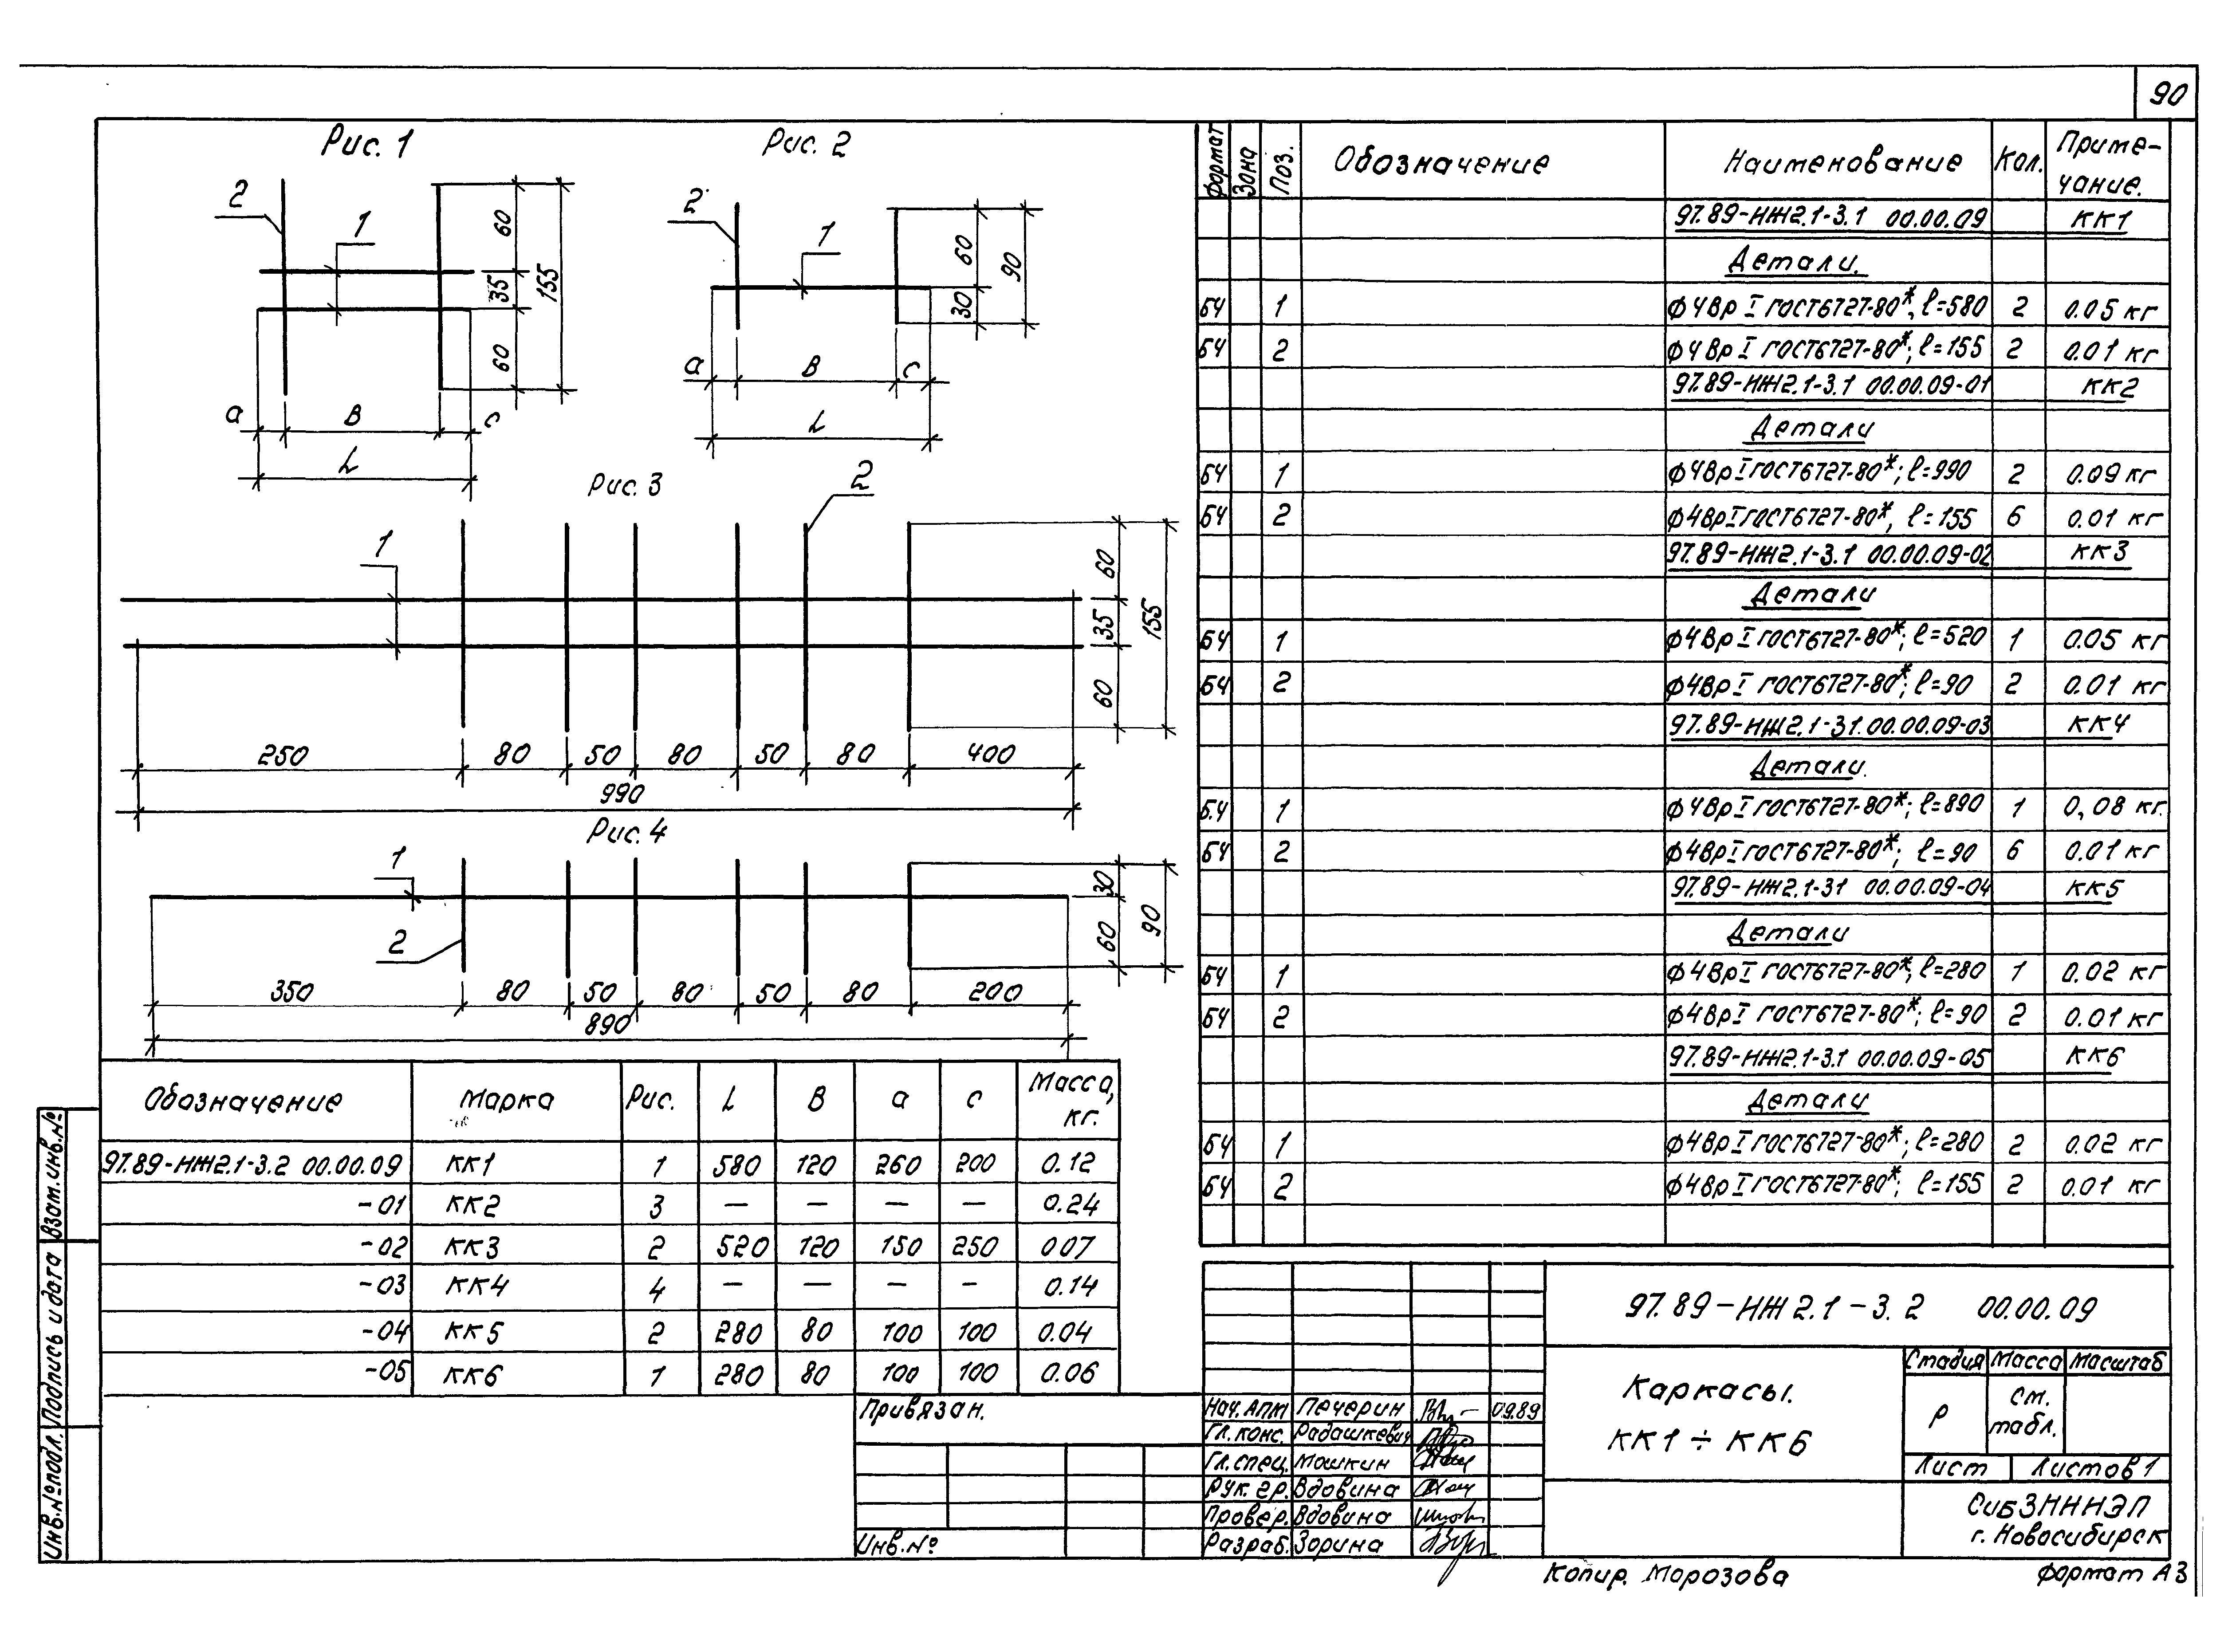 90
Рис. 1
2
1
60
35
60
155
а
В
с
L
Рис. 2
2
1
60
30
90
а
В
с
L
Рис. 3
1
2
60
35
60
155
250 80 50 80 50 80 400
990
Рис. 4
1
2
30
60
90
350 80 50 80 50 80 200
890
Обозначение Марка Рис. L В а с Масса, кг.
97.89-НЖ2.1-3.2 00.00.09 КК1 1 580 120 260 200 0.12
-01 КК2 3 — — — — 0.24
-02 КК3 2 520 120 150 250 0.07
-03 КК4 4 — — — — 0.14
-04 КК5 2 280 80 100 100 0.04
-05 КК6 1 280 80 100 100 0.06
Формат Зона Поз. Обозначение Наименование Кол. Приме-
чание.
97.89-НЖ2.1-3.1 00.00.09 КК1
Детали.
БЧ 1 ф4ВрI ГОСТ6727-80*, ℓ=580 2 0.05 кг
БЧ 2 ф4ВрI ГОСТ6727-80*; ℓ=155 2 0.01 кг
97.89-НЖ2.1-3.1 00.00.09-01 КК2
Детали
БЧ 1 ф4ВрI ГОСТ6727-80*; ℓ=990 2 0.09 кг
БЧ 2 ф4ВрI ГОСТ6727-80*, ℓ=155 6 0.01 кг
97.89-НЖ2.1-3.1 00.00.09-02 КК3
Детали
БЧ 1 ф4ВрI ГОСТ6727-80*; ℓ=520 1 0.05 кг
БЧ 2 ф4ВрI ГОСТ6727-80*; ℓ=90 2 0.01 кг
97.89-НЖ2.1-31.00.00.09-03 КК4
Детали.
Б.Ч 1 ф4ВрI ГОСТ6727-80*; ℓ=890 1 0,08 кг.
БЧ 2 ф4ВрI ГОСТ6727-80*; ℓ=90 6 0.01 кг
97.89-НЖ2.1-31 00.00.09-04 КК5
Детали
БЧ 1 ф4ВрI ГОСТ6727-80*; ℓ=280 1 0.02 кг
БЧ 2 ф4ВрI ГОСТ6727-80*; ℓ=90 2 0.01 кг
97.89-НЖ2.1-3.1 00.00.09-05 КК6
Детали
БЧ 1 ф4ВрI ГОСТ6727-80*; ℓ=280 2 0.02 кг
БЧ 2 ф4ВрI ГОСТ6727-80*; ℓ=155 2 0.01 кг
97.89-НЖ2.1-3.2 00.00.09
Каркасы.
КК1 ÷ КК6
Стадия Масса Масштаб
Р см. табл.
Лист Листов 1
СибЗНИИЭП
г. Новосибирск
Нач. АПМ Печерин 09.89
Гл. конс. Радашкевич
Гл. спец. Мошкин
Рук. гр. Вдовина
Провер. Вдовина
Разраб. Зорина
Привязан.
Инв. №
Взам. инв. №
Подпись и дата
Инв. № подл.
Копир. Морозова
формат А3